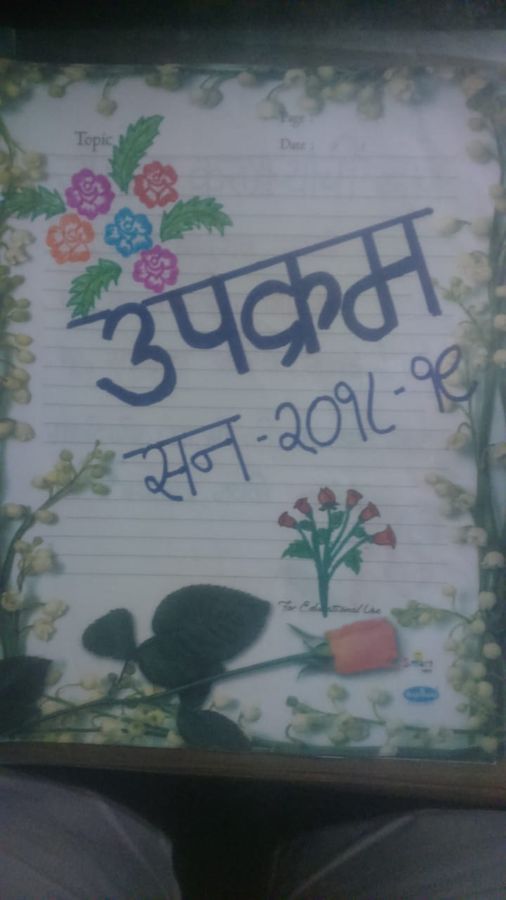 Page :
Topic
Date :
उपक्रम
सन - २०१८ - १९
For Educational Use